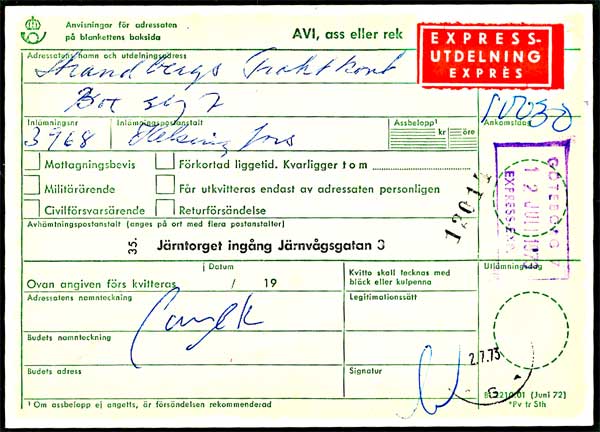 Anvisningar för adressaten
på blankettens baksida
AVI, ass eller rek
EXPRESS-
UTDELNING
EXPRÈS
Adressatens namn och utdelningsadress
Strandbergs Fraktkont
Box
Inlämningsnr
Inlämningspostanstalt
Assbelopp¹
kr
öre
Ankomstdag
3968
Helsingfors
Mottagningsbevis
Förkortad liggetid. Kvarligger t o m
Militärärende
Får utkvitteras endast av adressaten personligen
Civilförsvarsärende
Returförsändelse
GÖTEBORG 7
12014
Avhämtningspostanstalt (anges på ort med flera postanstalter)
35. Järntorget ingång Järnvågsgatan 3
Ovan angiven förs kvitteras
Datum
/ 19
Kvitto skall tecknas med
bläck eller kulpenna
Utlämningsdag
Adressatens namnteckning
Legitimationssätt
Budets namnteckning
Budets adress
Signatur
2.7.73
G
Bl 2210.01 (Juni 72)
*Pv fr Sth
¹ Om assbelopp ej angetts, är försändelsen rekommenderad